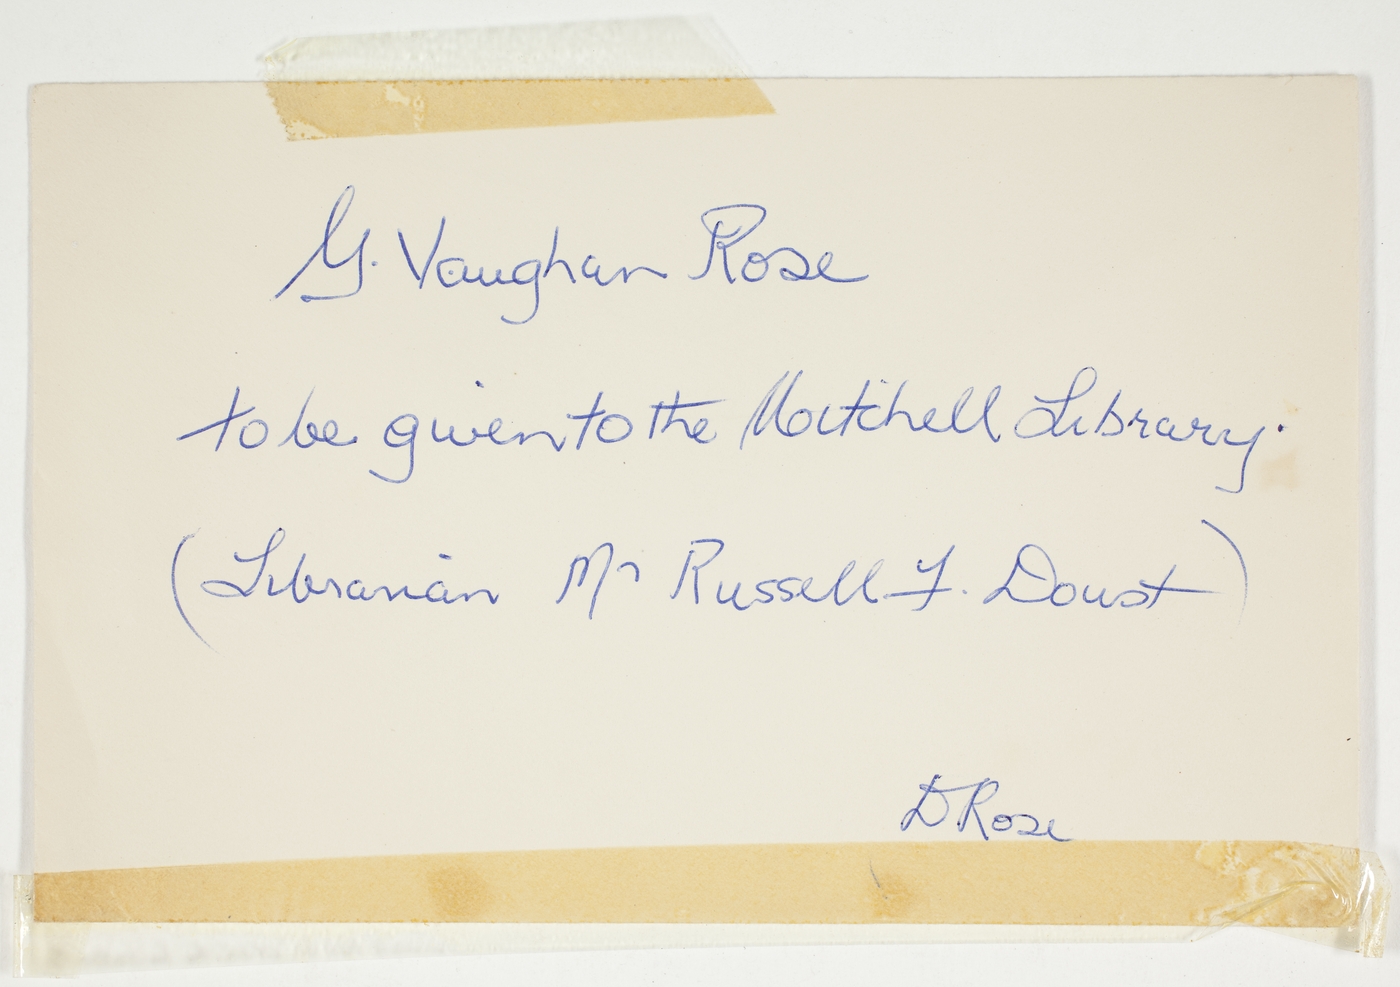 G. Vaughan Rose
to be given to the Mitchell Library.
(Librarian Mr Russell F. Doust)
D Rose